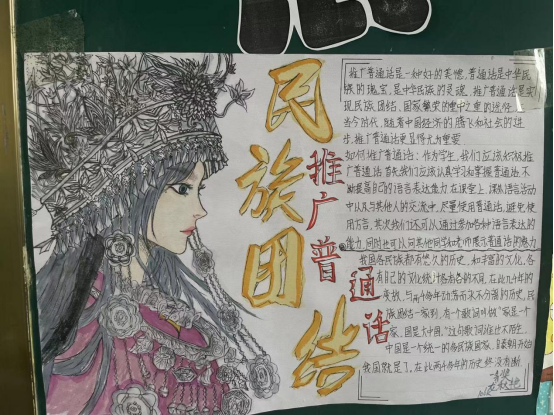 民族团结
推广普通话
推广普通话是一种好的美德,普通话是中华民
族的瑰宝,是中华民族的灵魂,推广普通话是实
现民族团结,国家繁荣的重中之重的途径。
当今时代,随着中国经济的腾飞和社会的进
步,推广普通话更显得尤为重要
如何推广普通话:作为学生,我们应该积极推
广普通话 首先我们应该认真学习和掌握普通话,不
断提高自己的语言表达能力 在课堂上,课外语言活动
中以及与其他人的交流中,尽量使用普通话,避免使
用方言,其次我们还可以通过参加各种语言表达的
能力,同时也可以向其他同学和老师展示普通话的魅力
我国各民族都有悠久的历史,和丰富的文化,各
有自己的文化统计各有各的不同,在此几千年的
变故,与两千多年动荡而未不分离的历史,民
族团结一家剩,有个歌词叫做"家是一个
家,国是大中国,"这句歌词谁也不陌生,
中国是一个统一的多民族国家,朝开始
我国就是了,在此两千多年的历史终没有断